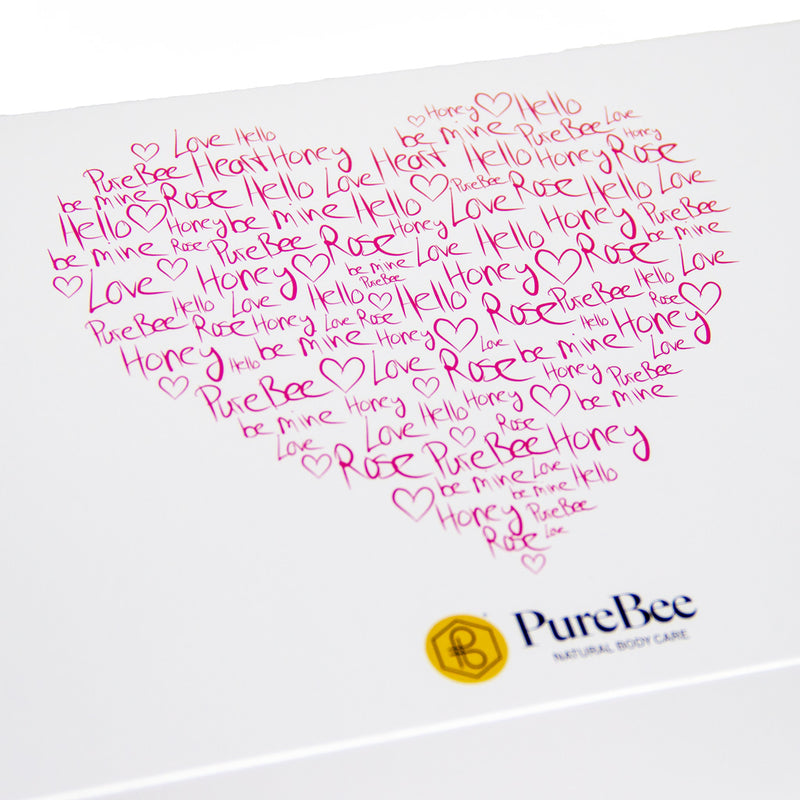 Honey Hello
Love Hello be mine PureBee Love
PureBee Heart Honey Heart Hello Honey Rose Honey
be mine Rose Hello Love PureBee Rose Hello Love
Hello Honey be mine Hello Love Hello Honey PureBee
be mine Rose PureBee Rose Honey Rose be mine
Love Honey be mine Love Honey Hello Love
PureBee
PureBee Hello Love Hello Hello Rose PureBee Rose
Rose Honey Love Rose Hello Honey
Honey Hello be mine Honey Love be mine Love
PureBee Love Rose Honey PureBee
be mine Honey Hello Honey be mine
Love Love Rose
Rose PureBee Honey
be mine Love
be mine Hello
Honey PureBee
Rose Love
PureBee
NATURAL BODY CARE